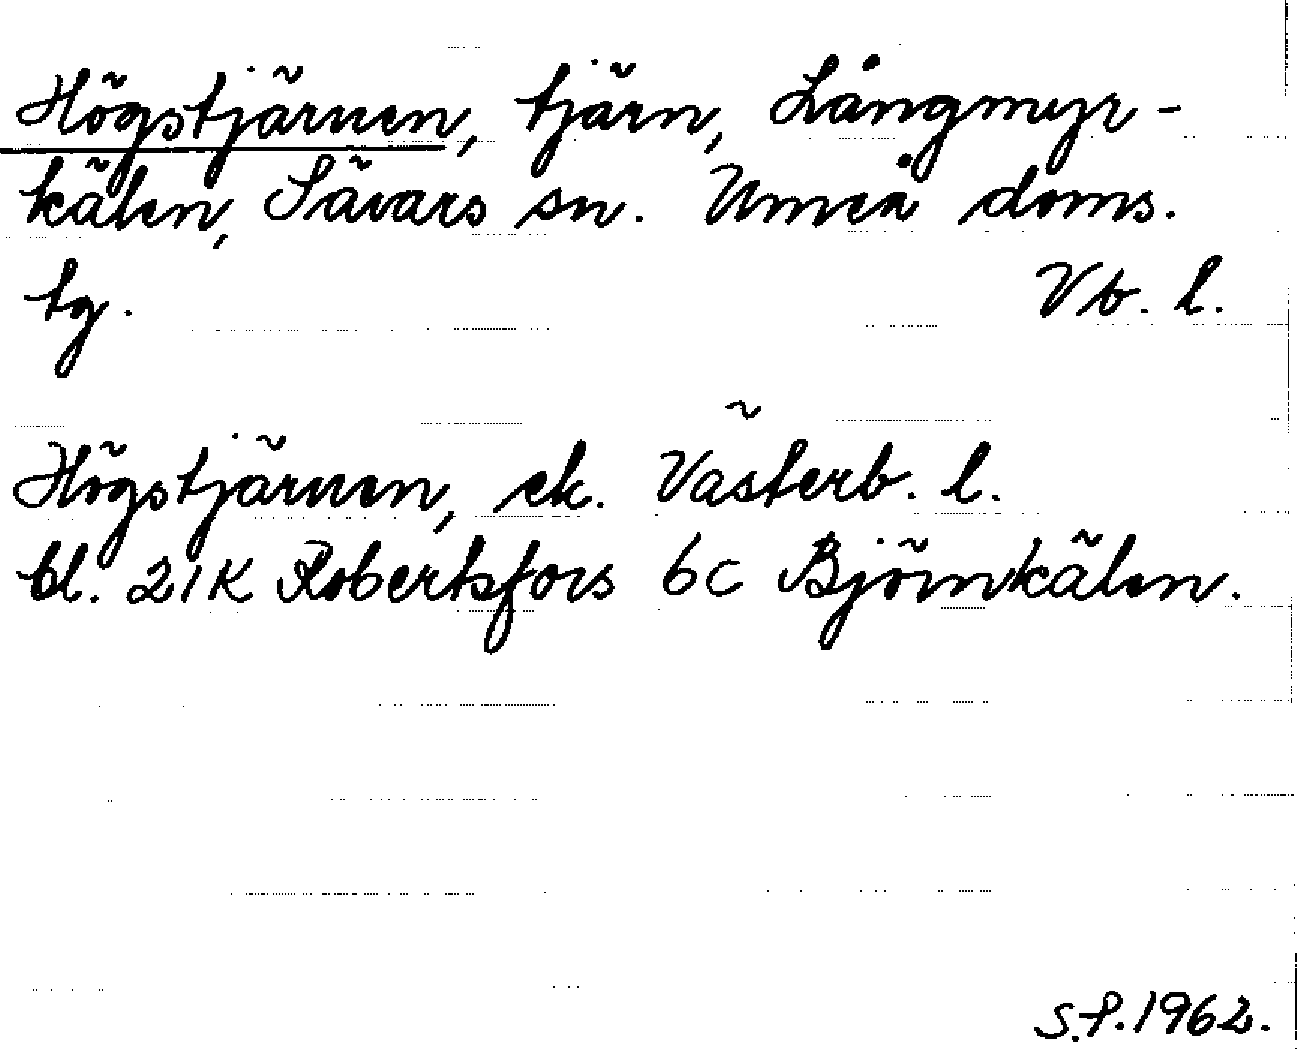 Högstjärnen, tjärn, Långmyr-
kälen, Sävars sn. Umeå doms.
tg. Vb. l.
Högstjärnen, ek. Västerb. l.
bl. 21K Robertsfors 6c Björnkälen.
S.P. 1962.